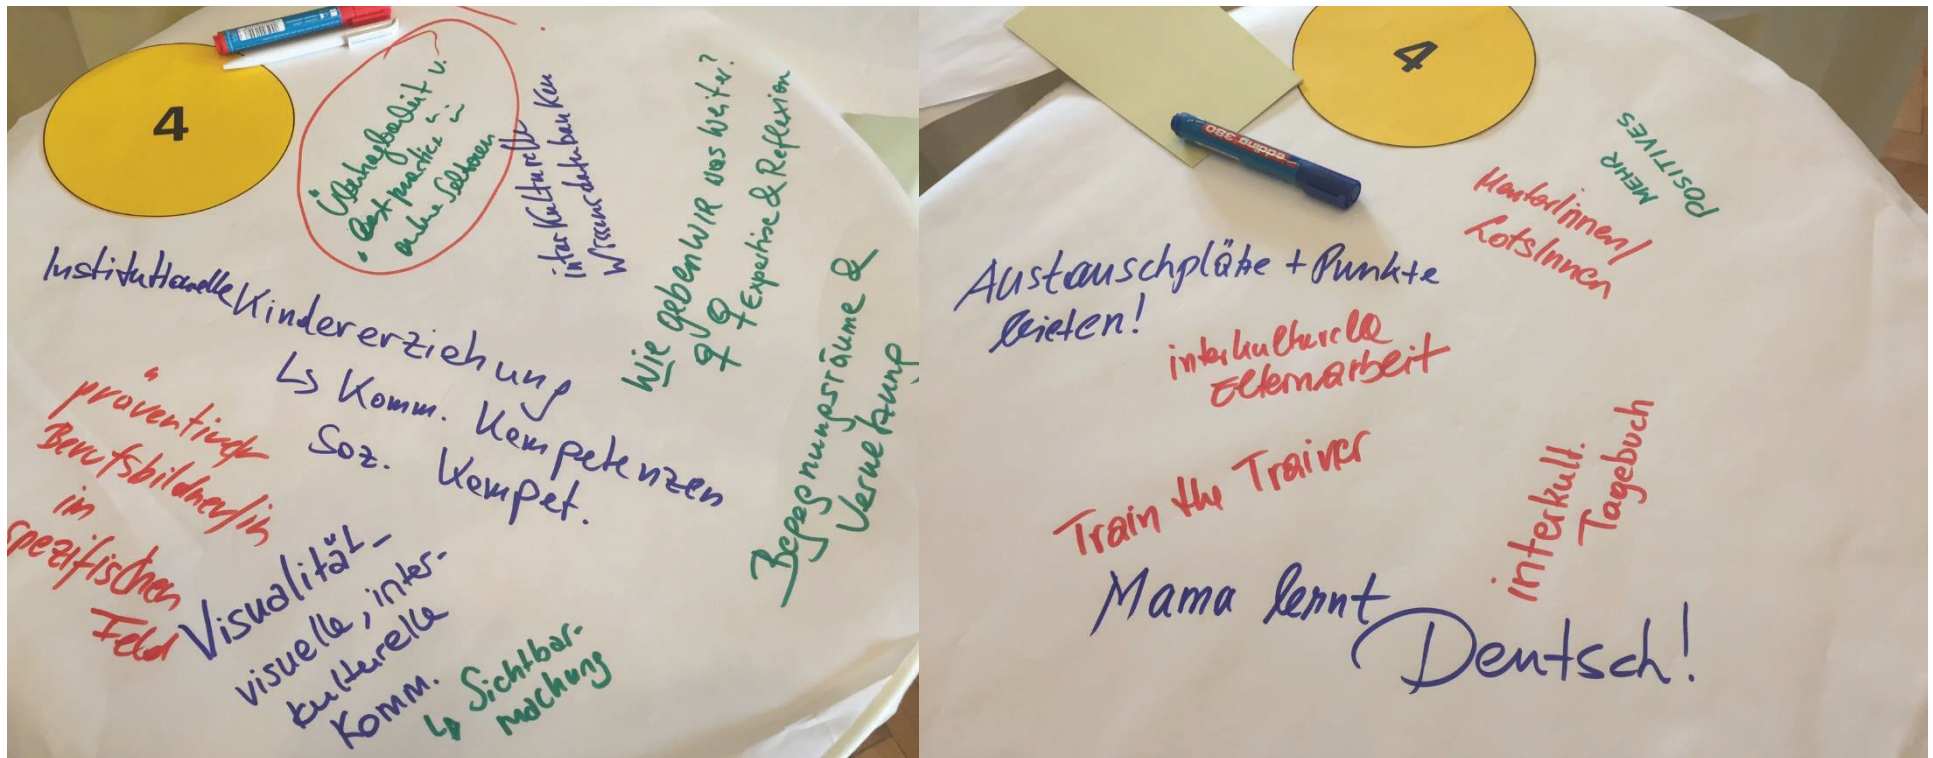 4
Übertragbarkeit v.
best practice in
andere Sektoren
interkulturelle
Wissensdatenbanken
Wie geben WIR was weiter?
♀♀
Expertise & Reflexion
Institutionelle Kindererziehung
↳ Komm. Kompetenzen
Soz. Kompet.
Begegnungsräume &
Vernetzung
präventive
BerufsbildnerIn
in
spezifischen
Feld
Visualität-
visuelle, inter-
kulturelle
Komm.
↳ Sichtbar-
machung
4
edding 380
MEHR
POSITIVES
MentorInnen/
LotsInnen
Austauschplätze + Punkte
bieten!
interkulturelle
Elternarbeit
Train the Trainer
interkult.
Tagebuch
Mama lernt
Deutsch!